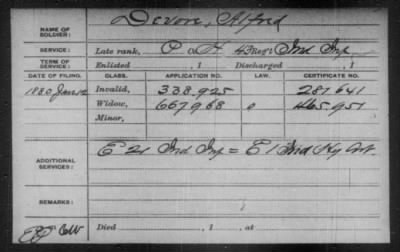 NAME OF SOLDIER: Devore, Alfred
SERVICE: Late rank, P Co H, 43 Reg't Ind Inf
TERM OF SERVICE: Enlisted , 1 Discharged , 1
DATE OF FILING. CLASS. APPLICATION NO. LAW. CERTIFICATE NO.
1880 Jan 12 Invalid, 338.925 287641
Widow, 667,968 465.951
Minor,
ADDITIONAL SERVICES: E 21 Ind Inf = E 1 Ind Hy Art.
REMARKS:
Died , 1 , at